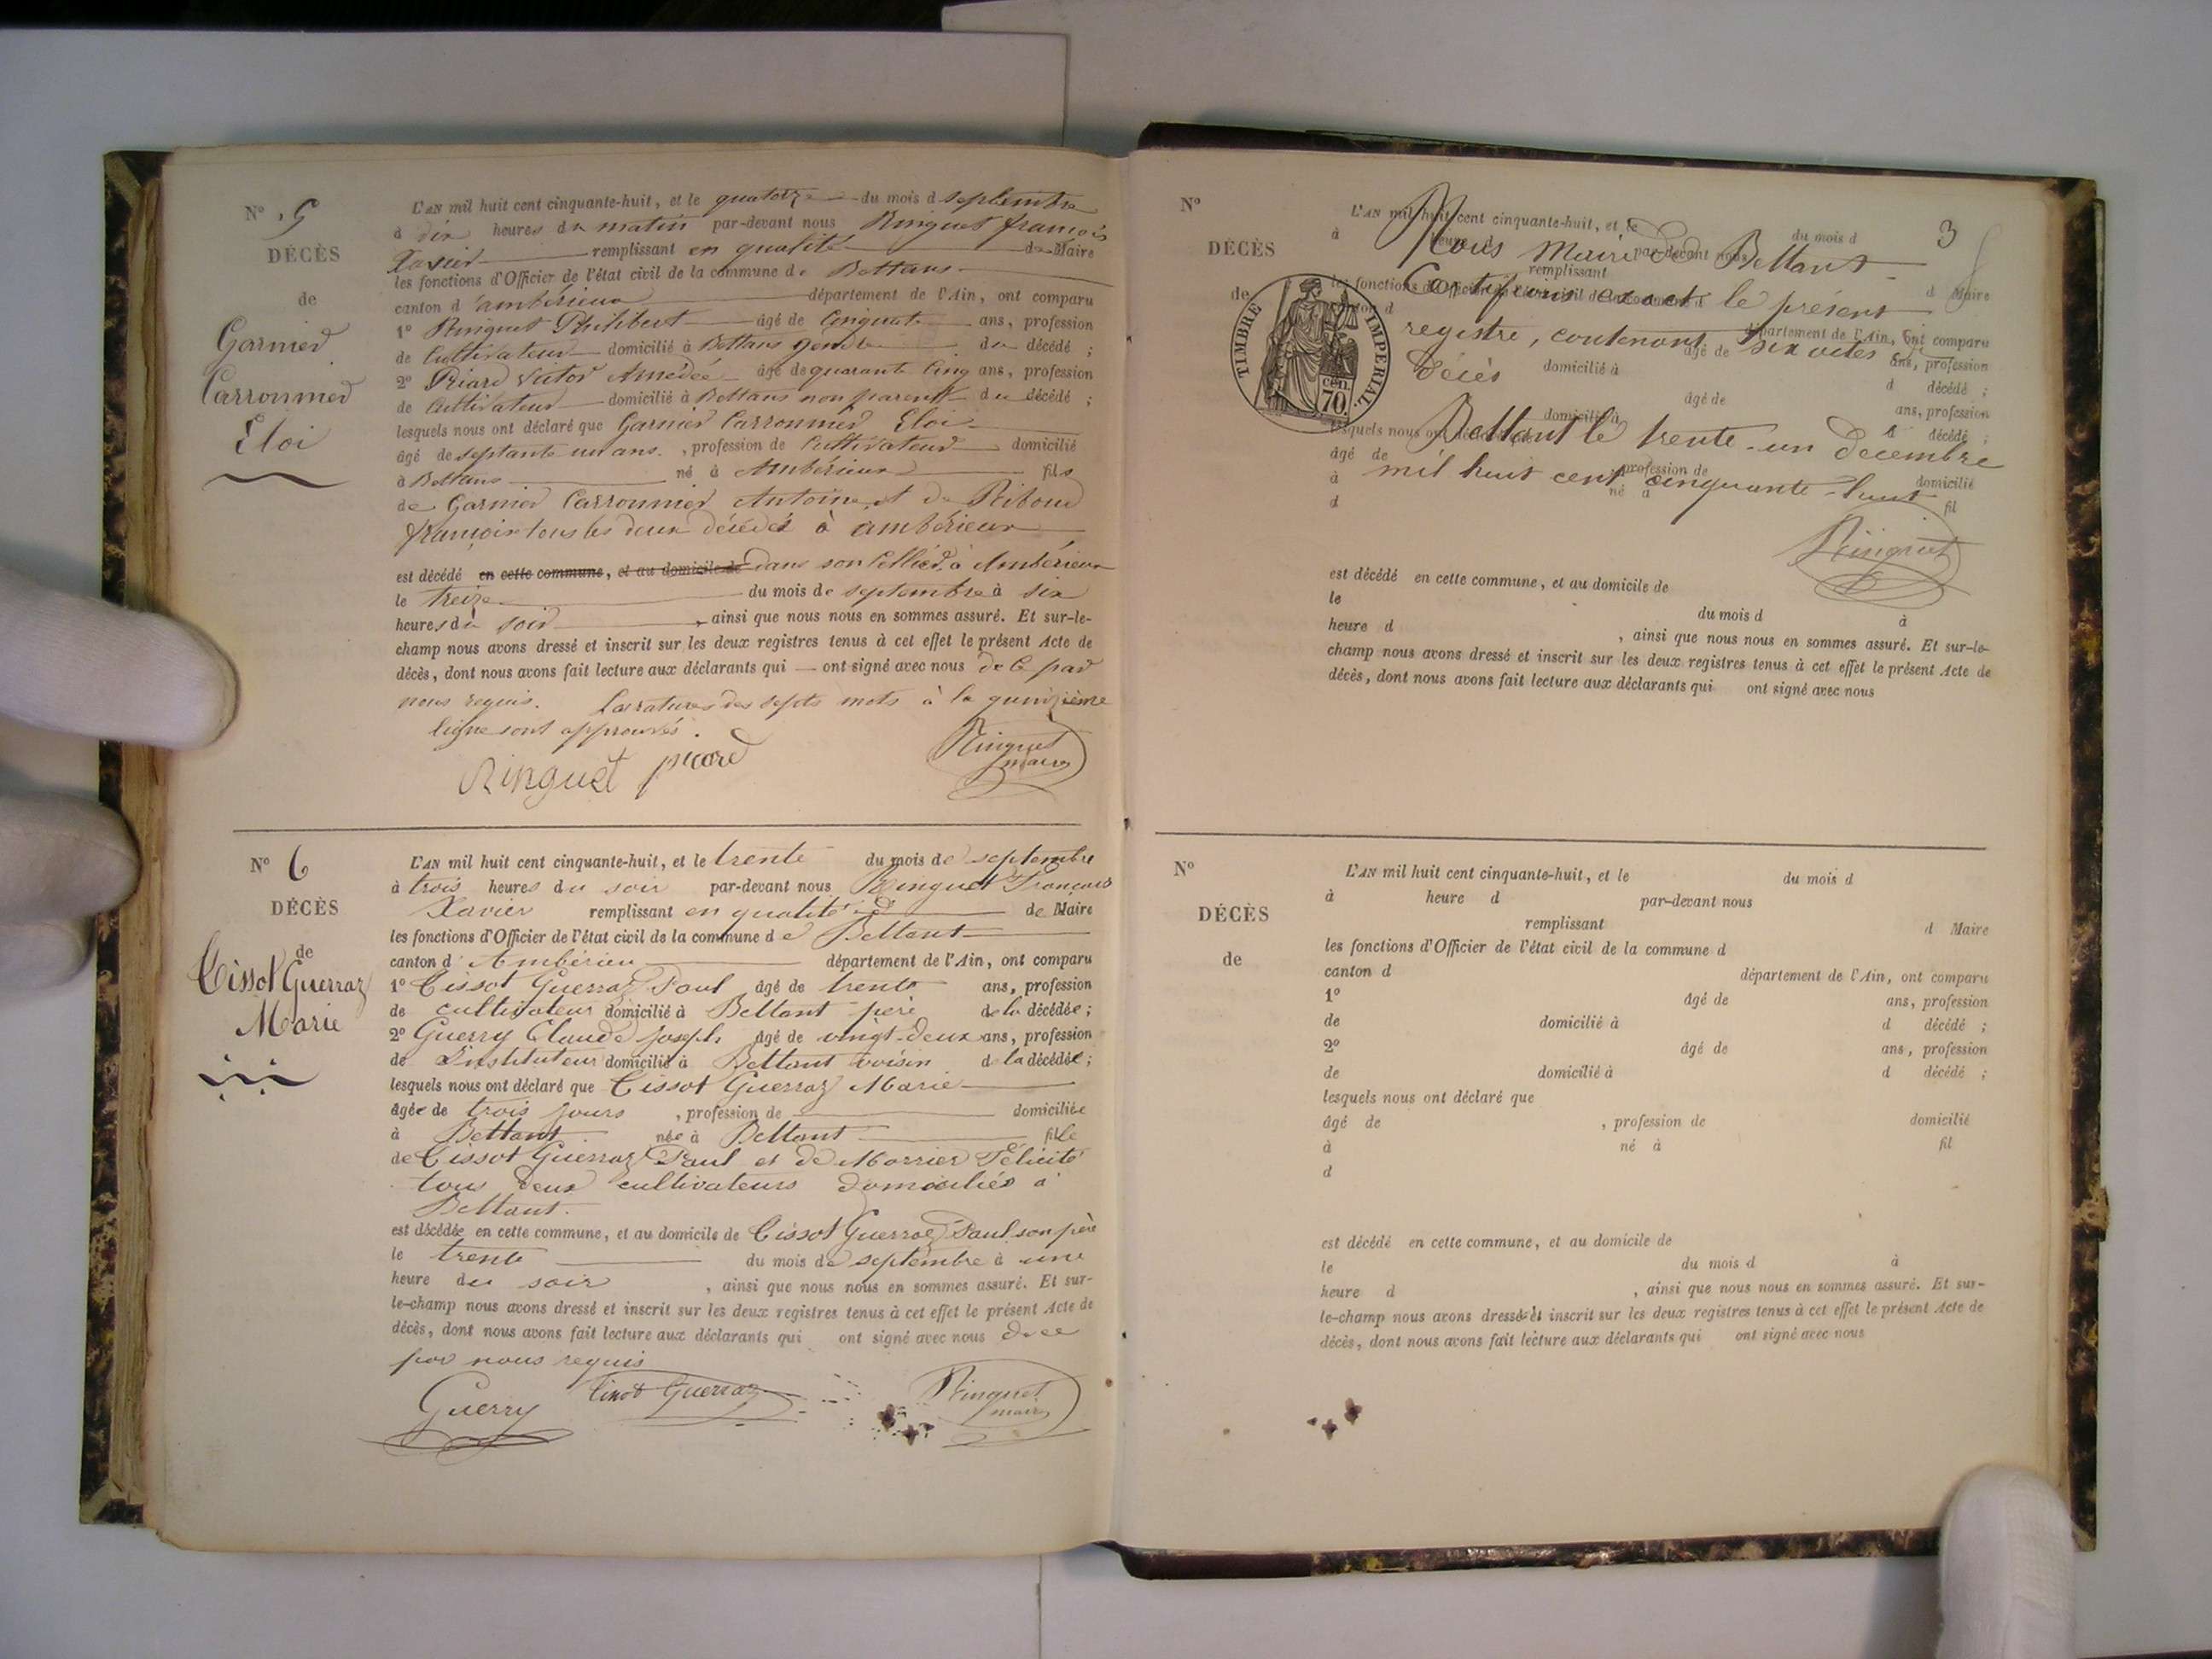 N° 5
DÉCÈS
de
Garnier
Carronnier
Eloi
L'AN mil huit cent cinquante-huit, et le quatorze du mois d septembre
à dix heures du matin par-devant nous Ringuet françois
Xavier remplissant en qualité de Maire
les fonctions d'Officier de l'état civil de la commune de Bettans
canton d'ambérieux département de l'Ain, ont comparu
1° Ringuet Philibert âgé de Cinquante ans, profession
de Cultivateur domicilié à Bettans gendre du décédé ;
2° Picard Victor Amédée âgé de quarante Cinq ans, profession
de Cultivateur domicilié à Bettans non parent du décédé ;
lesquels nous ont déclaré que Garnier Carronnier Eloi
âgé de septante un ans, profession de Cultivateur domicilié
à Bettans né à Ambérieux fils
de Garnier Carronnier Antoine et de Riboud
françoise tous les deux décédés à ambérieux
est décédé en cette commune, et au domicile de dans son Cellier à Ambérieux
le treize du mois de septembre à six
heures du soir, ainsi que nous nous en sommes assuré. Et sur-le-
champ nous avons dressé et inscrit sur les deux registres tenus à cet effet le présent Acte de
décès, dont nous avons fait lecture aux déclarants qui ont signé avec nous de ce par
nous requis. Les ratures des septs mots à la quinzième
ligne sont approuvés.
Ringuet picard Ringuet
maire
N° 6
DÉCÈS
de
Tissot Guerraz
Marie
L'AN mil huit cent cinquante-huit, et le trente du mois de septembre
à trois heures du soir par-devant nous Ringuet François
Xavier remplissant en qualité de Maire
les fonctions d'Officier de l'état civil de la commune de Bettant
canton d'Ambérieu département de l'Ain, ont comparu
1° Tissot Guerraz Paul âgé de trente ans, profession
de cultivateur domicilié à Bettant père de la décédée ;
2° Guerry Claude joseph âgé de vingt-deux ans, profession
de Instituteur domicilié à Bettant voisin de la décédée ;
lesquels nous ont déclaré que Tissot Guerraz Marie
âgée de trois jours, profession de domiciliée
à Bettant née à Bettant fille
de Tissot Guerraz Paul et de Morrier Félicité
tous deux cultivateurs domiciliés à
Bettant.
est décédée en cette commune, et au domicile de Tissot Guerraz Paul son père
le trente du mois de septembre à une
heure du soir, ainsi que nous nous en sommes assuré. Et sur-
le-champ nous avons dressé et inscrit sur les deux registres tenus à cet effet le présent Acte de
décès, dont nous avons fait lecture aux déclarants qui ont signé avec nous de ce
par nous requis
Guerry Tissot Guerraz Ringuet
maire
3
N°
DÉCÈS
de
TIMBRE IMPÉRIAL
70 cen.
L'AN mil huit cent cinquante-huit, et le du mois d
à heure d par-devant nous
remplissant d Maire
les fonctions d'Officier de l'état civil de la commune d
canton d département de l'Ain, ont comparu
âgé de ans, profession
domicilié à d décédé ;
âgé de ans, profession
domicilié à d décédé ;
lesquels nous ont déclaré que
âgé de profession de domicilié
à né à fil
d
Nous Maire de Bettant
Certifions exact le présent
registre, contenant six actes de
décès
Bettant le trente-un décembre
mil huit cent cinquante-huit
Ringuet
est décédé en cette commune, et au domicile de
le du mois d à
heure d , ainsi que nous nous en sommes assuré. Et sur-le-
champ nous avons dressé et inscrit sur les deux registres tenus à cet effet le présent Acte de
décès, dont nous avons fait lecture aux déclarants qui ont signé avec nous
N°
DÉCÈS
de
L'AN mil huit cent cinquante-huit, et le du mois d
à heure d par-devant nous
remplissant d Maire
les fonctions d'Officier de l'état civil de la commune d
canton d département de l'Ain, ont comparu
1° âgé de ans, profession
de domicilié à d décédé ;
2° âgé de ans, profession
de domicilié à d décédé ;
lesquels nous ont déclaré que
âgé de , profession de domicilié
à né à fil
d
est décédé en cette commune, et au domicile de
le du mois d à
heure d , ainsi que nous nous en sommes assuré. Et sur-
le-champ nous avons dressé et inscrit sur les deux registres tenus à cet effet le présent Acte de
décès, dont nous avons fait lecture aux déclarants qui ont signé avec nous